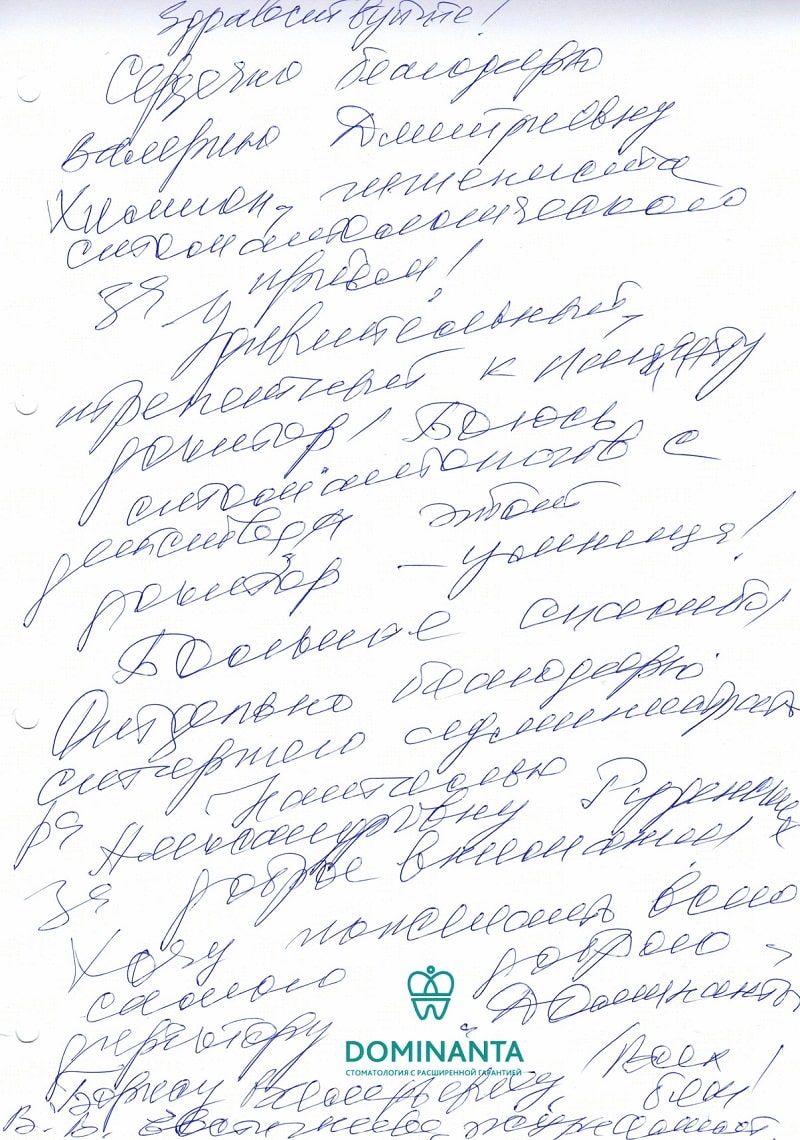 Здравствуйте!
Сердечно благодарю
Валерию Дмитриевну
стоматологического
за приём!
Удивительный,
трепетный к пациенту
доктор! Боюсь
стоматологов с
детства, а этот
доктор — умница!
Большое спасибо!
Отдельно благодарю
старшего администрато
ра Наталью
Александровну
за доброе внимание!
Хочу пожелать всего
самого доброго
директору Доминанты
DOMINANTA
СТОМАТОЛОГИЯ С РАСШИРЕННОЙ ГАРАНТИЕЙ
Всех благ!